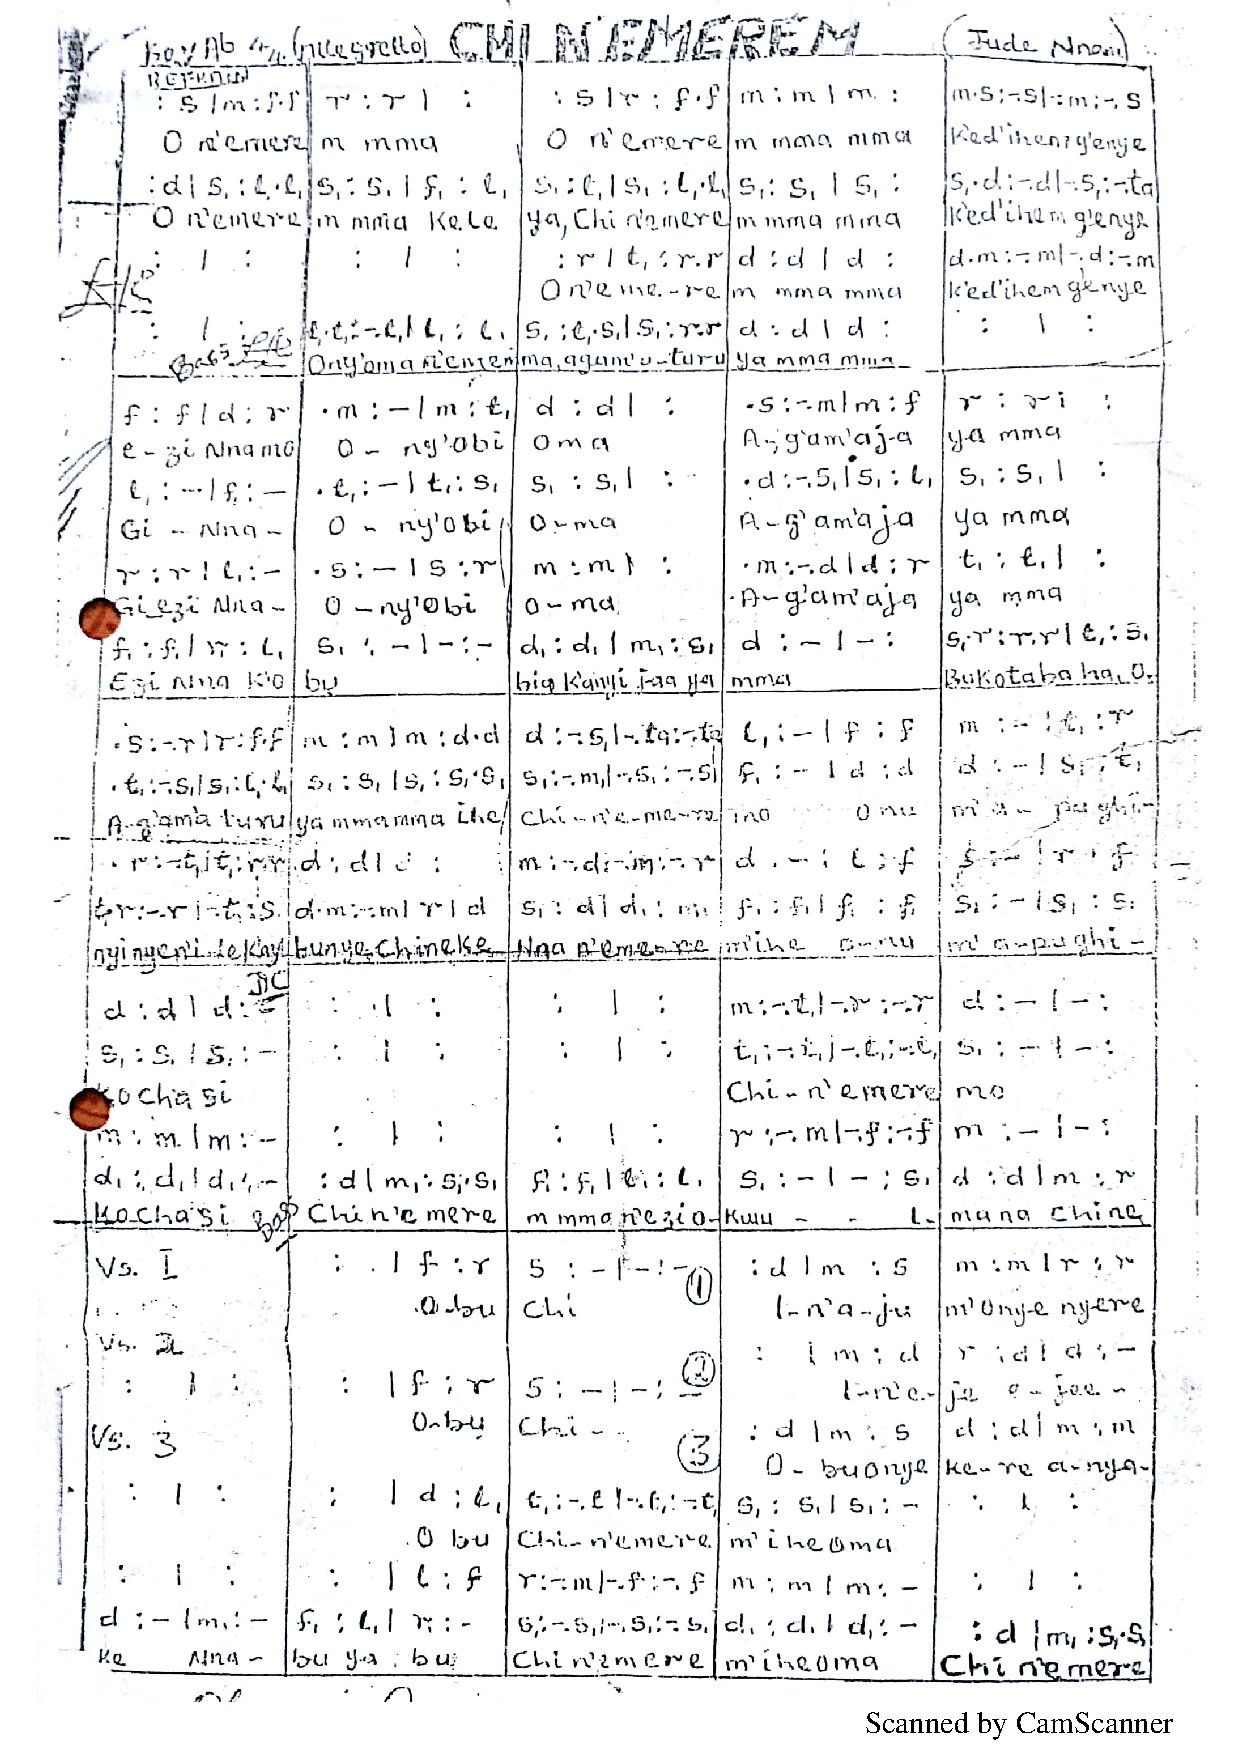 Key Ab 4/4 (Allegretto) CHI N'EMEREM (Jude Nnam)
REFRAIN
: s | m : f.f | r : r | : | : s | r : f.f | m : m | m : | m.s :-.s |-.m :-.s
O n'emere m mma O n'emere m mma mma Ked'ihem g'enye
: d | s₁ : l₁.l₁ | s₁ : s₁ | f₁ : l₁ | s₁ : l₁ | s₁ : l₁.l₁ | s₁ : s₁ | s₁ : | s₁.d :-.d |-.s₁ :-.ta
O n'emere m mma Kele ya, Chi n'emere m mma mma Ked'ihem g'enye
: | : | : | : | : r | t₁ : r.r | d : d | d : | d.m :-.m |-.d :-.m
O n'eme-re m mma mma Ked'ihem g'enye
: | : | l₁.l₁ :-.l₁ | l₁ : l₁ | s₁ : l₁.s₁ | s₁ : r.r | d : d | d : | : | :
Bass Ony'oma n'emem ma, agam'o-turu ya mma mma
f : f | d : r | .m : - | m : t₁ | d : d | : | .s :-.m | m : f | r : r | :
e-zi Nna mo O - ny'obi oma A-g'am'aja ya mma
l₁ : - | f₁ : - | .l₁ : - | t₁ : s₁ | s₁ : s₁ | : | .d :-.s₁ | s₁ : l₁ | s₁ : s₁ | :
Gi - Nna - O - ny'obi O-ma A-g'am'aja ya mma
r : r | l₁ : - | .s : - | s : r | m : m | : | .m :-.d | d : r | t₁ : t₁ | :
Giezi Nna - O - ny'obi O-ma A-g'am'aja ya mma
f₁ : f₁ | r₁ : l₁ | s₁ : - | - : - | d₁ : d₁ | m₁ : s₁ | d : - | - : | s₁.r : r.r | l₁ : s₁
Ezi Nna K'o bu bia kanyi jaa ya mma Bukotaba ha, O
.s :-.r | r : f.f | m : m | m : d.d | d :-.s₁ |-.ta :-.ta | l₁ : - | f : f | m : - | t₁ : r
.t₁ :-.s₁ | s₁ : l₁.l₁ | s₁ : s₁ | s₁ : s₁.s₁ | s₁ :-.m₁ |-.s₁ :-.s₁ | f₁ : - | d : d | d : - | s₁ : t₁
A-g'ama turu ya mmamma ihe Chi-n'e-me-re mo onu m'a - pughi-
.r :-.t₁ | t₁ : r.r | d : d | d : | m :-.d |-.m :-.r | d : - | l : f | s : - | r : f
t₁.r :-.r |-.t₁ : s₁ | d.m :-.m | r | d | s₁ : d | d₁ : m₁ | f₁ : f₁ | f₁ : f₁ | s₁ : - | s₁ : s₁
bunye Chineke Nna n'emere m'ihe o-nu m'a-pughi-
DC
d : d | d : - | : | : | : | : | m :-.t₁ |-.r :-.r | d : - | - :
s₁ : s₁ | s₁ : - | : | : | : | : | t₁ :-.t₁ |-.t₁ :-.t₁ | s₁ : - | - :
kochasi Chi-n'emere mo
m : m | m : - | : | : | : | : | r :-.m |-.f :-.f | m : - | - :
d₁ : d₁ | d₁ : - | : d | m₁ : s₁.s₁ | f₁ : f₁ | l₁ : l₁ | s₁ : - | - : s₁ | d : d | m : r
Kochasi Bass Chi n'emere m mma n'ezio- Kwu - - I- mana Chine
Vs. I : | f : r | s : - | - : - (1) : d | m : s | m : m | r : r
O-bu Chi I-n'a-ju m'onye nyere
Vs. 2 : | m : d | r : d | d : -
: | : | : | f : r | s : - | - : - (2) I-n'e-je e-jee-
O-bu Chi-
Vs. 3 (3) : d | m : s | d : d | m : m
O-buonye ke-re a-nya-
: | : | : | d : l₁ | t₁ :-.t |-.t₁ :-.t₁ | s₁ : s₁ | s₁ : - | : | :
O bu Chi-n'emere m'iheoma
: | : | : | l : f | r :-.m |-.f :-.f | m : m | m : - | : | :
d : - | m₁ : - | f₁ : l₁ | r : - | s₁ :-.s₁ |-.s₁ :-.s₁ | d₁ : d₁ | d₁ : - | : d | m₁ : s₁.s₁
ke Nna- bu ya bu Chi n'emere m'iheoma Chi n'emere
Scanned by CamScanner